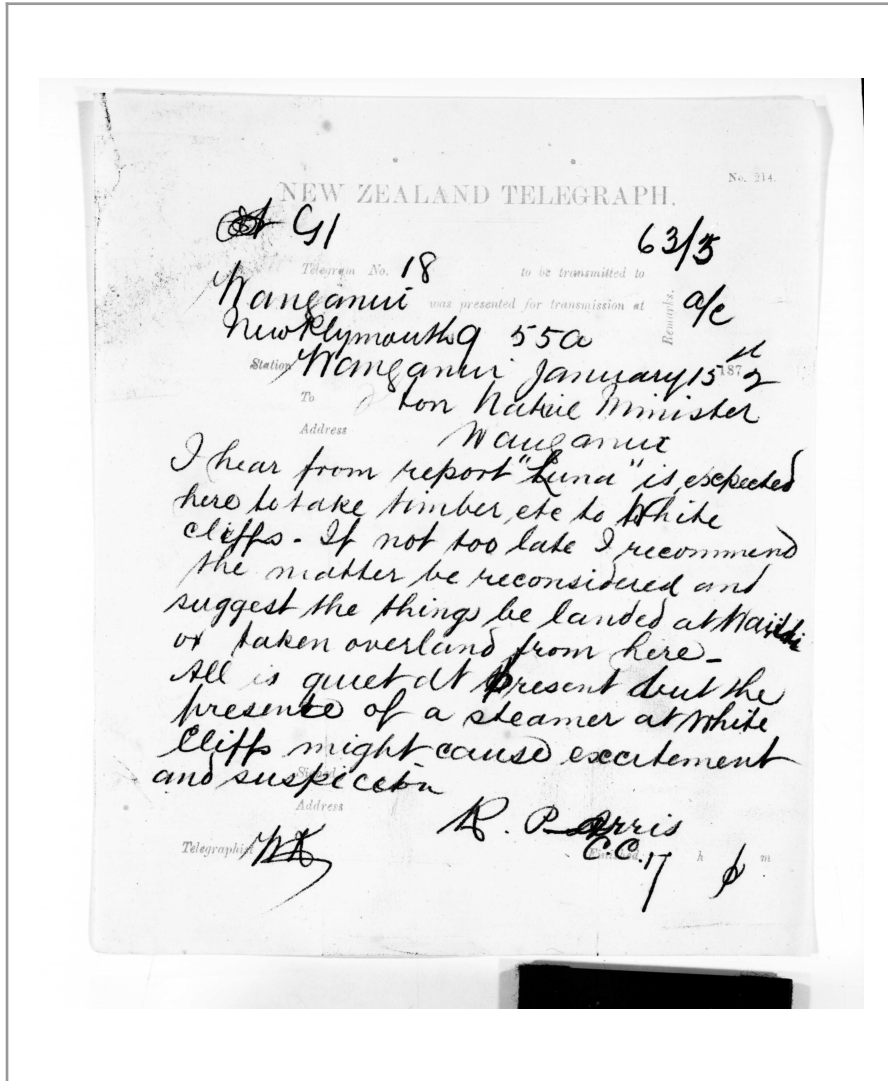 No. 214.
NEW ZEALAND TELEGRAPH.
G1 63/5
Telegram No. 18 to be transmitted to
Wanganui was presented for transmission at
Remarks. a/c
New Plymouth 9 55a
Station Wanganui January 15 1872
To Hon Native Minister
Address Wanganui
I hear from report "Luna" is expected
here to take timber etc to White
Cliffs - If not too late I recommend
the matter be reconsidered and
suggest the things be landed at
or taken overland from here -
All is quiet at present but the
presence of a steamer at White
Cliffs might cause excitement
and suspicion
Address
R. Parris
C.C.
Telegraphist h m